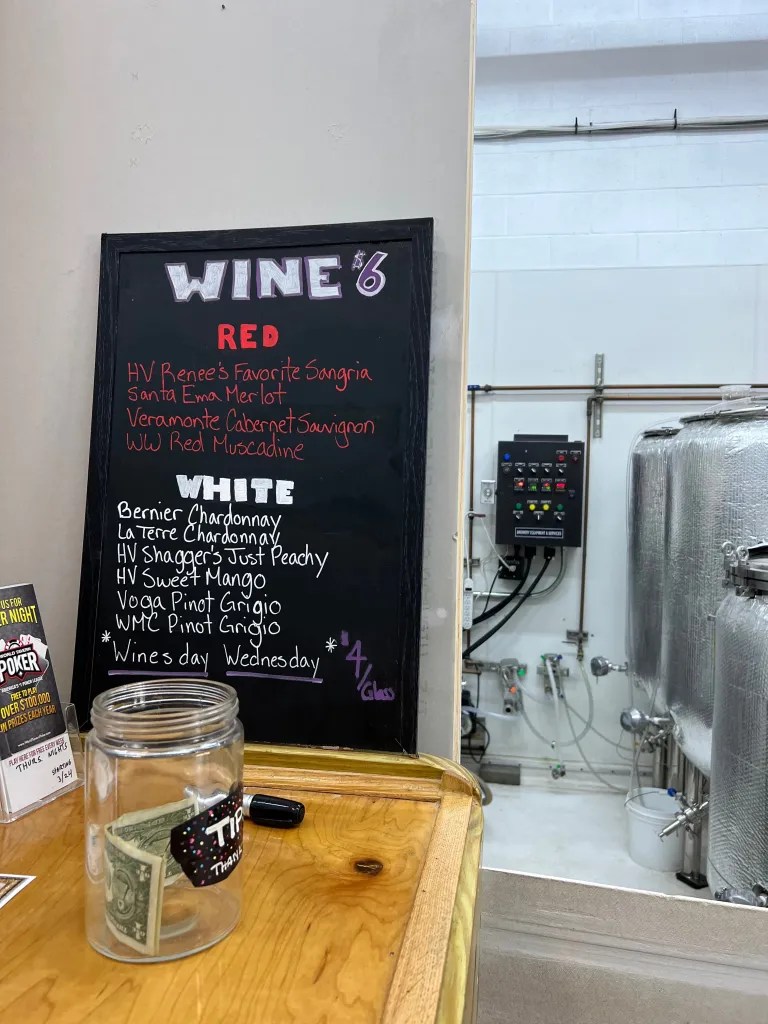 WINE $6
RED
HV Renee's Favorite Sangria
Santa Ema Merlot
Veramonte Cabernet Sauvignon
WW Red Muscadine
WHITE
Bernier Chardonnay
La Terre Chardonnay
HV Shagger's Just Peachy
HV Sweet Mango
Voga Pinot Grigio
WMC Pinot Grigio
* Winesday Wednesday * $4/Glass
US FOR
ER NIGHT
WORLD TAVERN
POKER
FREE TO PLAY
OVER $100,000
IN PRIZES EACH YEAR
PLAY HERE FOR FREE EVERY WEEK
THURS NIGHTS
STARTING
3/24
TIP
THAN